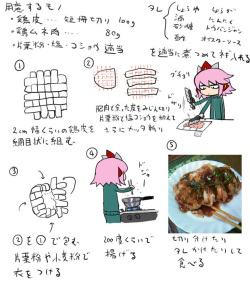 用意するモノ
・鶏皮…… 短冊切り 100g
・鶏ムネ肉…… 80g
・片栗粉・塩・コショウ 適当
タレ
しょうゆ
しょうが
酒
たんたく
砂糖
トウバンジャン
酢
オイスターソース
を適当に煮つめてネギ入れる
①
2cm幅くらいの鶏皮を
網目状に組む
②
肥肉と余った皮をみじん切り
片栗粉と塩コショウを加えて
さらにメッタ斬り
③
②を①で包む
片栗粉や小麦粉で
衣をつける
④
200度くらいで
揚げる
⑤
切り分けたり
タレかけたりして
食べる